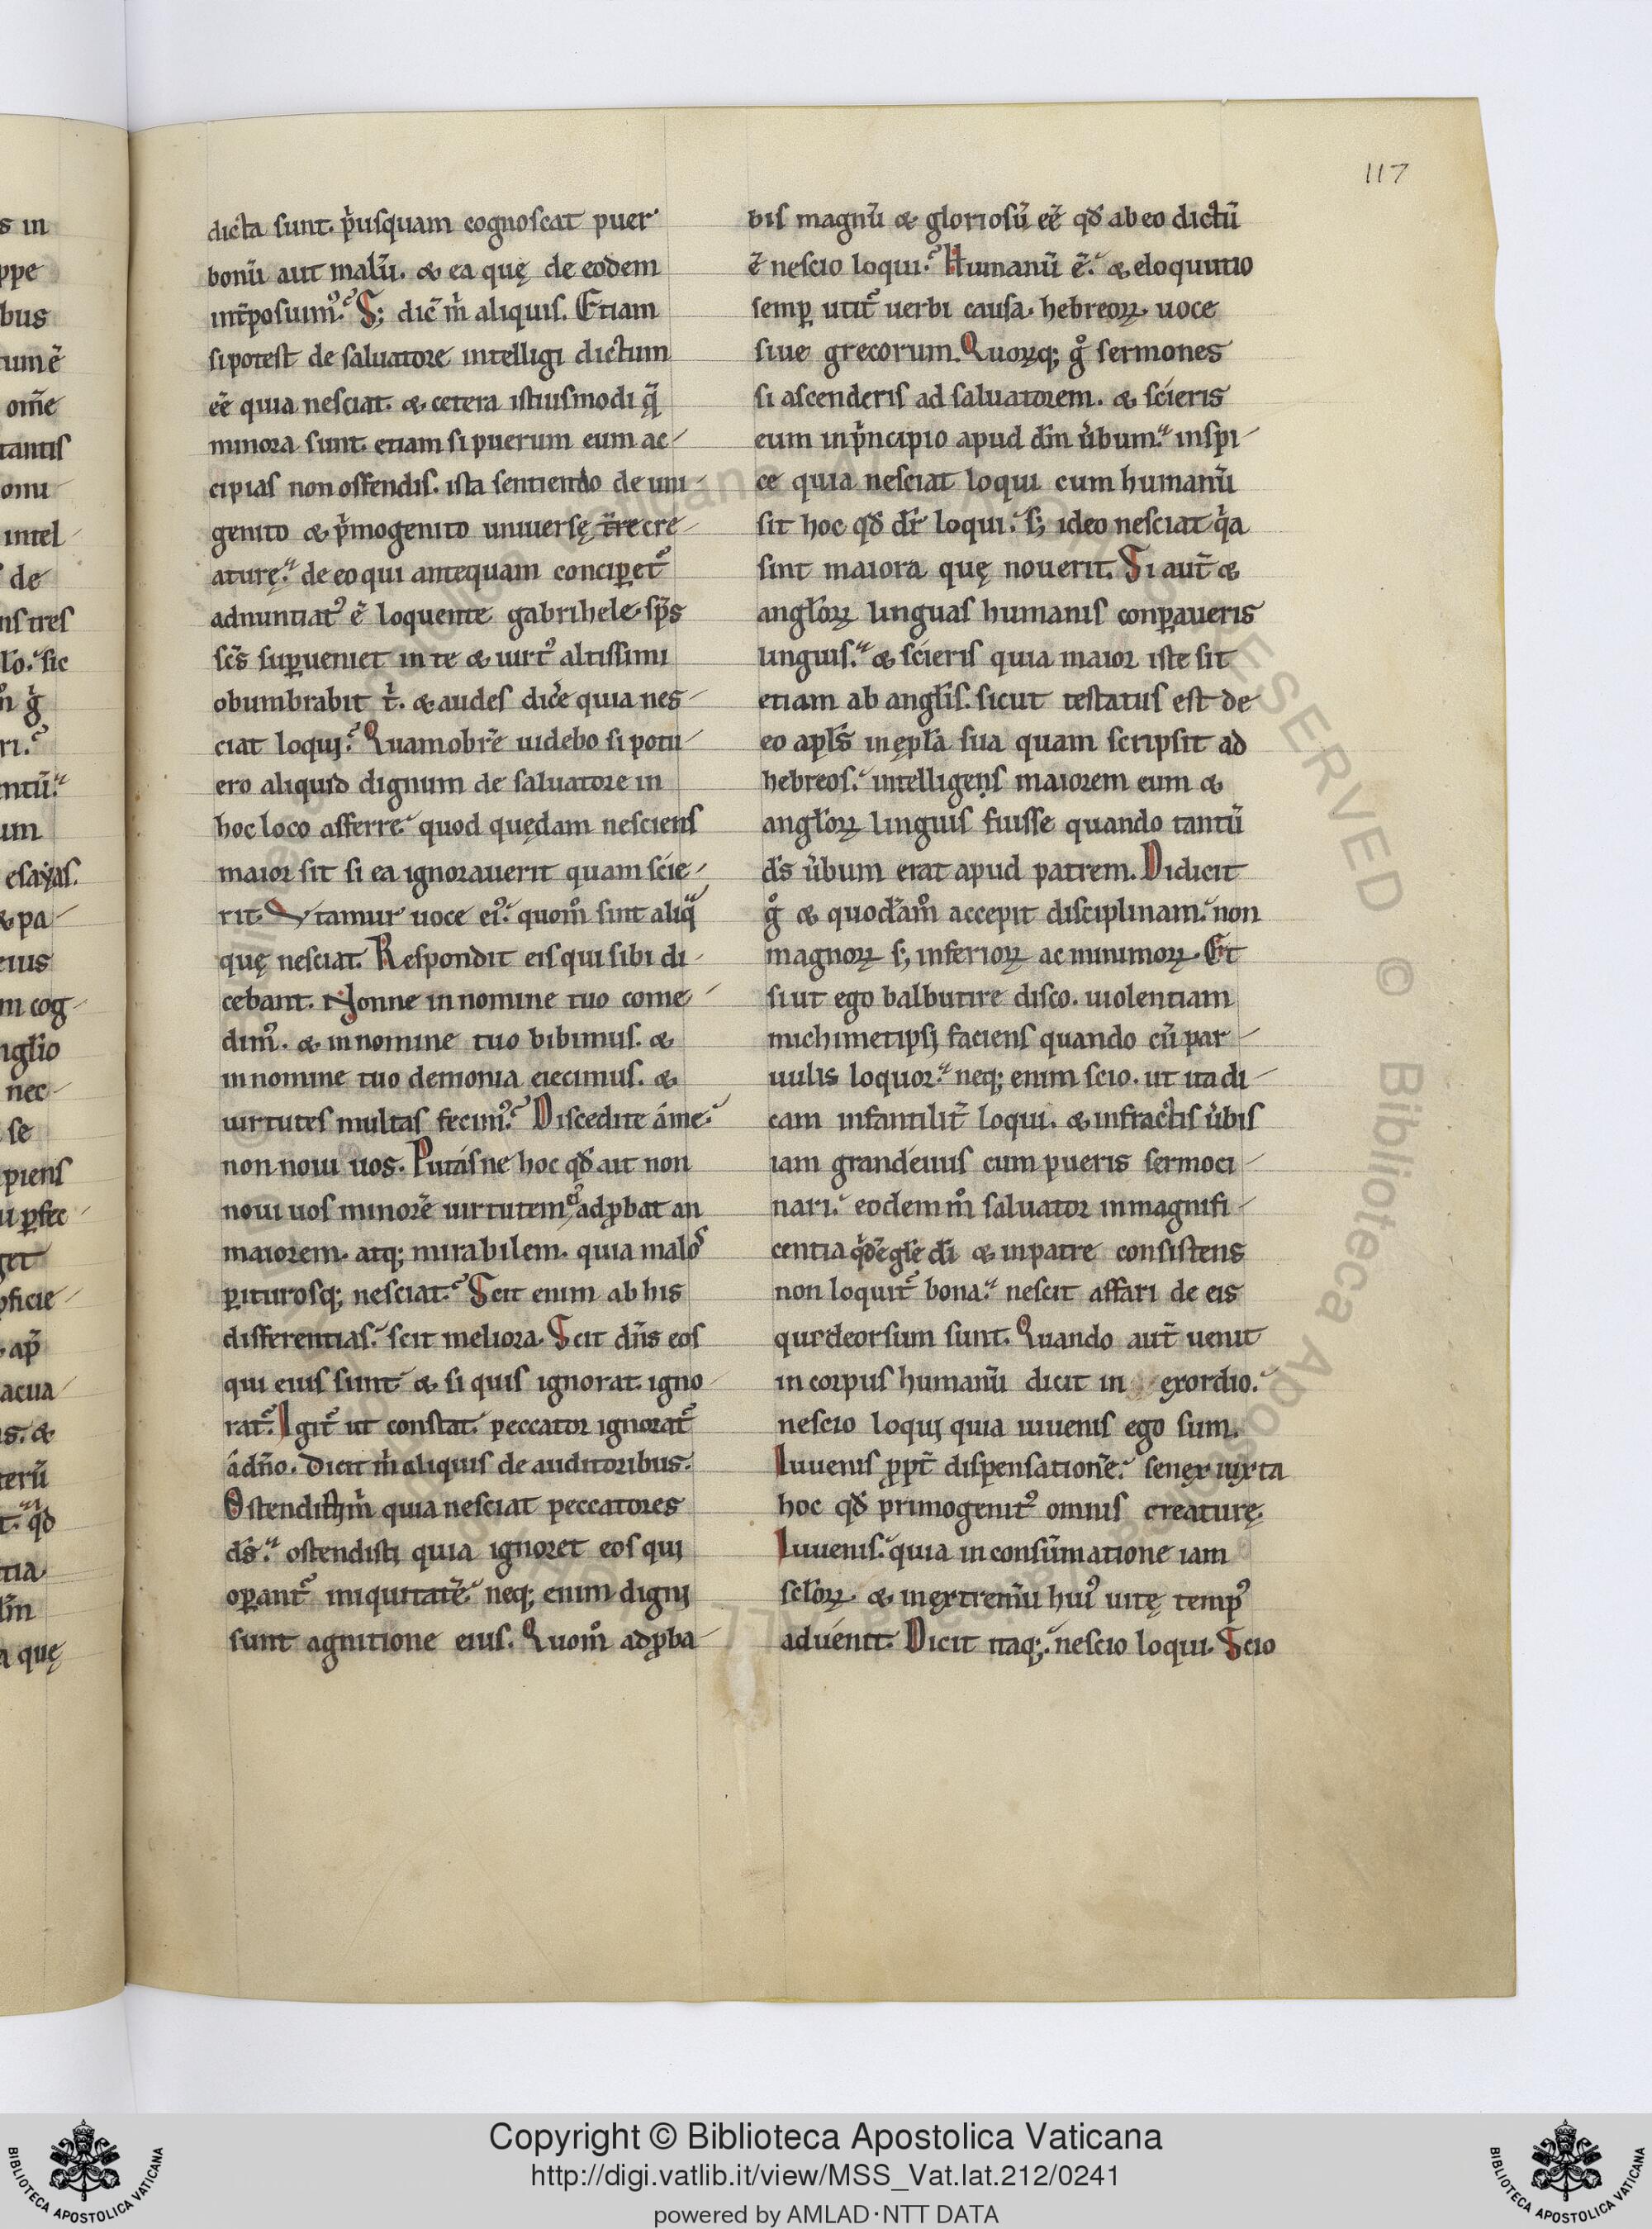 117
dicta sunt. p̾usquam cognoscat puer
bonū aut malū. & ea quę de eodem
int̄posuim᷒. S; dic̄ m̾ aliquis. Etiam
si potest de saluatore intelligi dictum
eē quia nesciat. & cetera istiusmodi q̄
minora sunt. etiam si puerum eum ac-
cipias non offendis. ista sentiendo de uni-
genito & p̾mogenito uniuersę t̄re cre-
aturę. de eo qui antequam conciꝑet᷒
adnuntiat᷒ ē loquente gabrihele. sp̄s
sc̄s suꝑueniet in te & uirt᷒ altissimi
obumbrabit t̾. & audes dic̄e quia nes-
ciat loqui. Quamobrē uidebo si potu-
ero aliquid dignum de saluatore in
hoc loco afferre. quod quędam nesciens
maior sit si ea ignorauerit quam scie-
rit. Vtamur uoce ei᷒. quom̊ sint aliq̄
quę nesciat. Respondit eis qui sibi di-
cebant. Nonne in nomine tuo come-
dim᷒. & in nomine tuo bibimus. &
in nomine tuo demonia eiecimus. &
uirtutes multas fecim᷒. Discedite á me.
non noui uos. Putásne hoc qđ ait non
noui uos minorē uirtutem ei᷒ adꝓbat an
maiorem. atq; mirabilem. quia malos
ꝑiturosq; nesciat. Scit enim ab his
differentias. scit meliora. Scit dn̄s eos
qui eius sunt & si quis ignorat. igno-
rat᷒. Igit᷒ ut constat. peccator ignorat᷒
á dn̄o. Dicit m̾ aliquis de auditoribus.
Ostendisti m̾ quia nesciat peccatores
ds̄. ostendisti quia ignoret eos qui
oꝑant᷒ iniquitatē. neq; enim digni
sunt agnitione eius. Quom̊ adꝓba-
bis magnū & gloriosū eē qđ ab eo dictū
ē nescio loqui. Humanū ē. & eloquutio
semꝑ utit᷒ uerbi causa. hebreoꝝ uoce
siue grecorum. Quoꝝq; g̊ sermones
si ascenderis ad saluatorem. & scieris
eum in p̾ncipio apud dm̄ u̾bum. inspi-
ce quia nesciat loqui cum humanū
sit hoc qđ dr̄ loqui. s; ideo nesciat q̾a
sint maiora quę nouerit. Si aut̄ &
angl̄oꝝ linguas humanis conꝑaueris
linguis. & scieris quia maior iste sit
etiam ab angl̄is. sicut testatus est de
eo apl̄s in ępl̄a sua quam scripsit ad
hebreos. intelligens maiorem eum &
angl̄oꝝ linguis fuisse quando tantū
ds̄ u̾bum erat apud patrem. Didicit
g̊ & quodām̊ accepit disciplinam. non
magnoꝝ s; inferioꝝ ac minimoꝝ. Et
si ut ego balbutire disco. uiolentiam
michimetipsi faciens quando cū par-
uulis loquor. neq; enim scio. ut ita di-
cam infantilit̄ loqui. & infractis u̾bis
iam grandeuus cum pueris sermoci-
nari. eodem m̊ saluator in magnifi-
centia q̾dē gl̄e dī & in patre consistens
non loquit᷒ bona. nescit affari de eis
qui deorsum sunt. Quando aut̄ uenit
in corpus humanū dicit in exordio.
nescio loqui quia iuuenis ego sum.
Iuuenis ꝓpt̄ dispensationē. senex iuxta
hoc qđ primogenit᷒ omnis creaturę.
Iuuenis. quia in consūmatione iam
scl̄oꝝ. & in extremū hui᷒ uitę temp᷒
aduenit. Dicit itaq;. nescio loqui. Scio
Copyright © Biblioteca Apostolica Vaticana
http://digi.vatlib.it/view/MSS_Vat.lat.212/0241
powered by AMLAD·NTT DATA